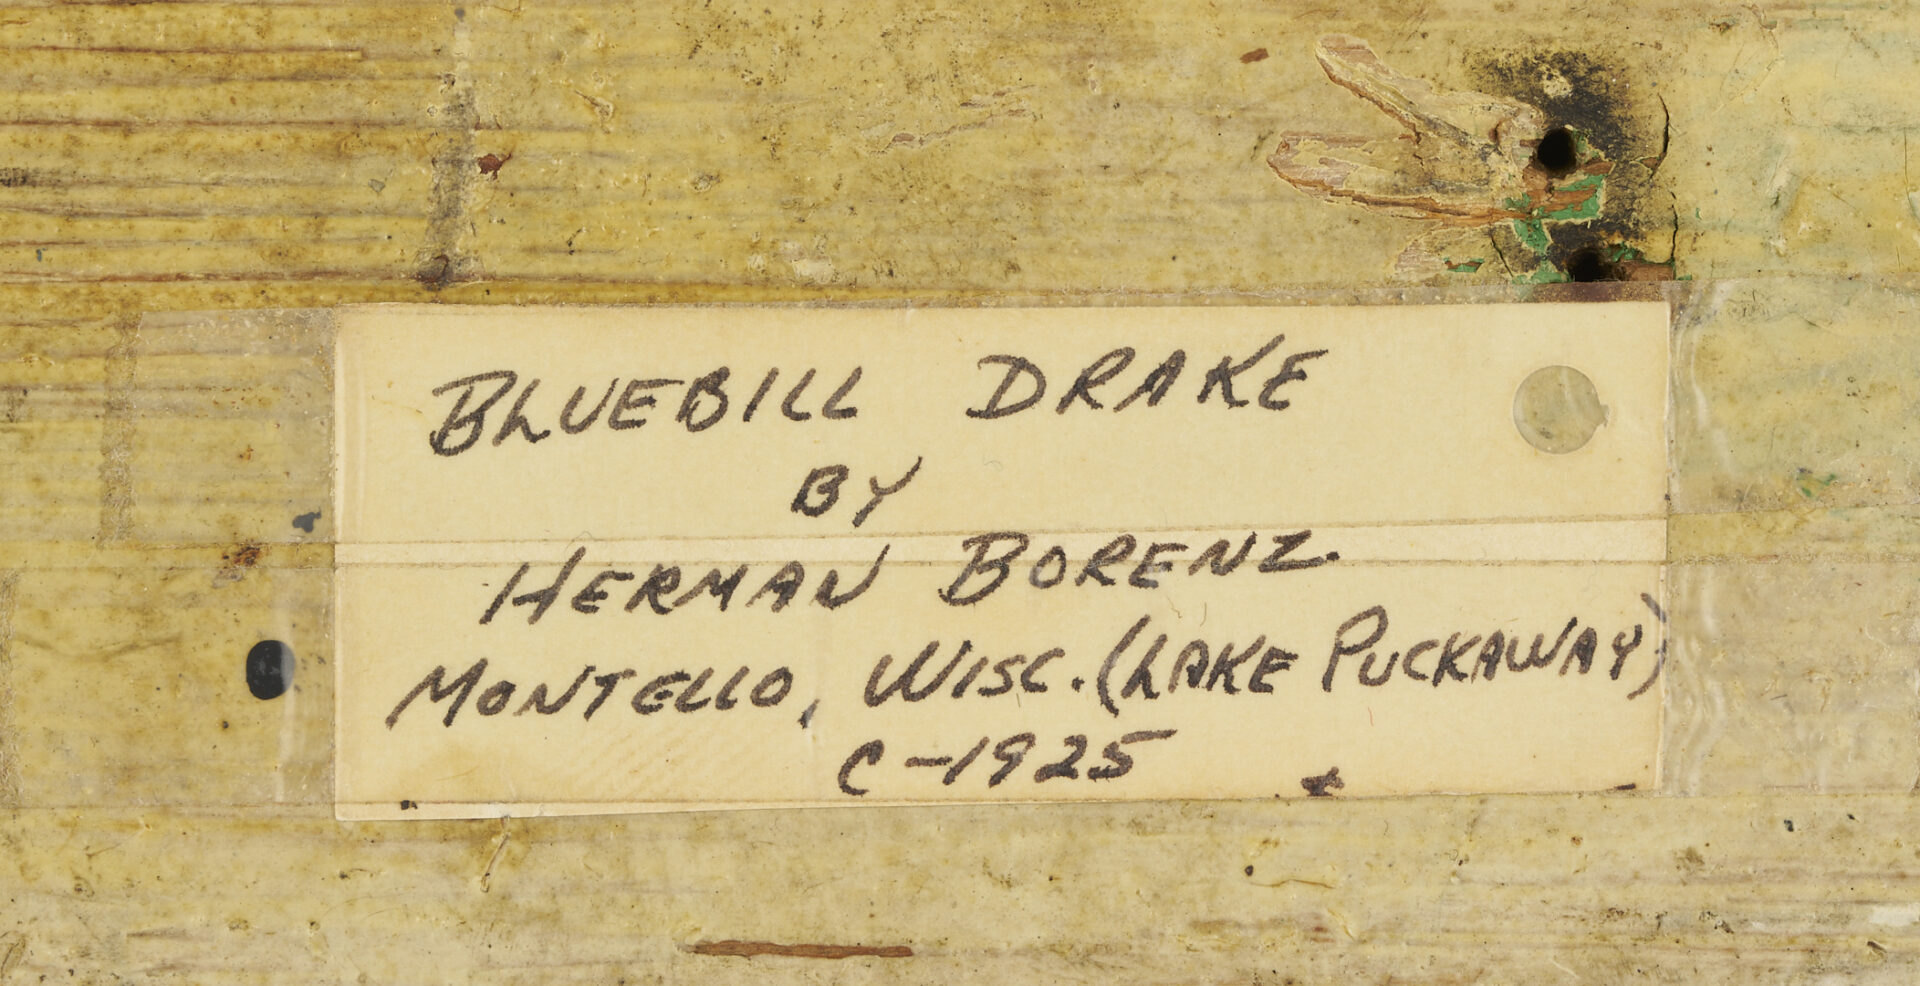 BLUEBILL DRAKE
BY
HERMAN BORENZ
MONTELLO, WISC. (LAKE PUCKAWAY)
C-1925